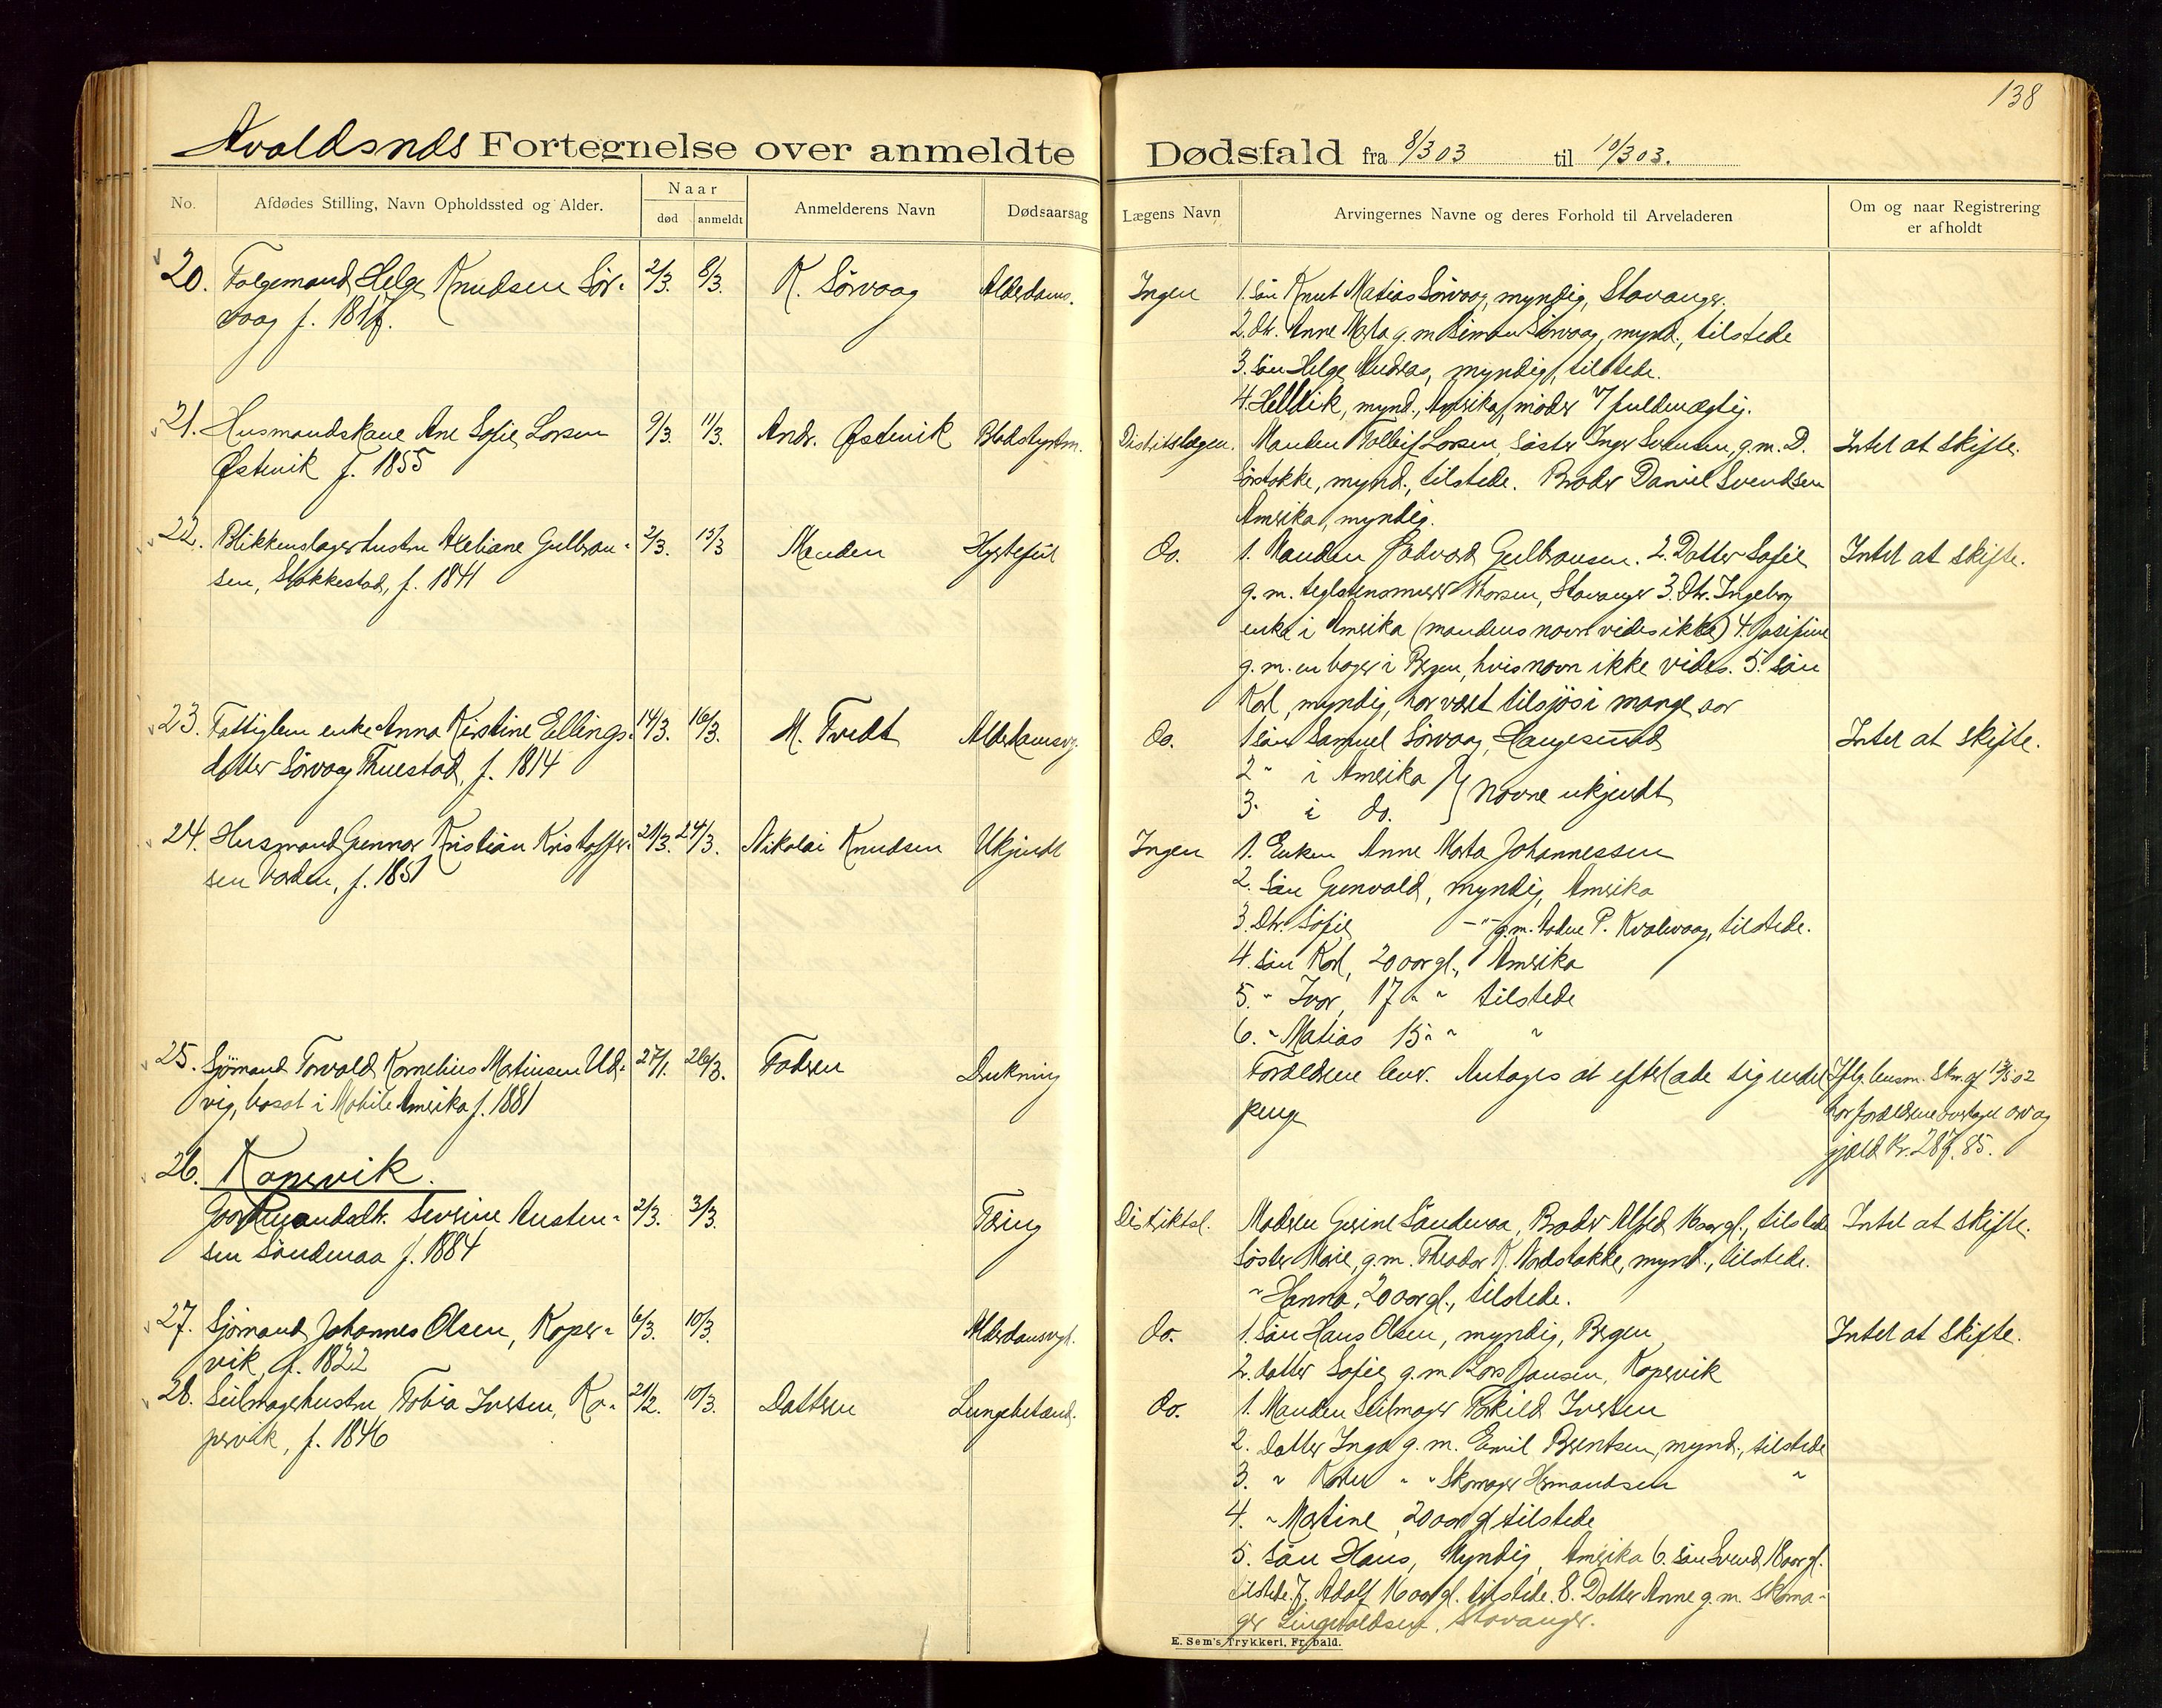 138
Avaldsnes Fortegnelse over anmeldte Dødsfald fra 8/3 03 til 10/3 03.
No. Afdødes Stilling, Navn Opholdssted og Alder. Naar død anmeldt Anmelderens Navn Dødsaarsag Lægens Navn Arvingernes Navne og deres Forhold til Arveladeren Om og naar Registrering er afholdt
20. Folgemand Helge Knudsen Sör- 2/3. 8/3. K. Sörvaag Alderdoms. Ingen 1. Sön Knut Matias Sörvaag, myndig, Stavanger.
vaag f. 1817. 2. Dtr. Anne Marta g.m. Simon Sörvaag, mynd., tilstede
3. Sön Helge Andreas, myndig, tilstede.
4. Hellvik, mynd., Amerika,
21. Husmandskone Ane Sofie Larsen 9/3. 11/3. Andr. Østevik Blodstyrtn. Distriktslægen. Manden Tolleif Larsen, Söster Inger Svensen, g.m. D. Intet at skifte.
Østevik f. 1855 Sörstokke, mynd., tilstede. Broder Daniel Svendsen
Amerika, myndig.
22. Blikkenslagerhustru Axeliane Gulbran- 2/3. 13/3 Manden Hjertefeil Do. 1. Manden Edvard Gulbransen. 2. Datter Sofie Intet at skifte.
sen, Stokkestad, f. 1841 g.m. teglstensmurer Thorsen, Stavanger 3. Dtr. Ingeborg
enke i Amerika (mandens navn vides ikke) 4. Josefine
g.m. en bager i Bergen, hvis navn ikke vides. 5. Sön
Karl, myndig, har været tilsjös i mange aar
23. Fattiglem enke Anna Kristine Ellings- 14/3. 16/3. M. Tvedt Alderdomssv. Do. 1 Sön Samuel Sörvaag, Haugesund Intet at skifte.
datter Sörvaag Thuestad, f. 1814 2 " i Amerika } navne ukjendt
3. i do.
24. Husmand Gunnar Kristian Kristoffer- 21/3. 24/3. Nikolai Knudsen Ukjendt Ingen 1. Enken Anne Marta Johannessen
sen Varden, f. 1851 2. Sön Gunvald, myndig, Amerika
3. Dtr. Sofie —"— g.m. Aadne P. Kvalavaag, tilstede.
4. Sön Karl, 20 aar gl., Amerika
5. " Ivar, 17 " " tilstede
6. " Matias 15 " " "
25. Sjömand Torvald Kornelius Matinsen Ud- 27/1. 26/3. Faderen Drukning Forældrene lever. Antages at efterlade sig endel Iflg. lensm. Skr. af 12/5 02
vig, bosat i Mobile Amerika f. 1881 penge har forældrene overtaget arv og
gjæld Kr. 287.85.
26. Kopervik.
Gaardmandsdtr. Severine Austen- 2/3. 3/3. Tæring Distriktsl. Moderen Gurine Söndenaa, Broder Alfred 16 aar gl., tilstede Intet at skifte.
sen Söndenaa f. 1884 Söster Marie, g.m. Theodor K. Nordstokke, mynd., tilstede.
" Hanna, 20 aar gl., tilstede.
27. Sjömand Johannes Olsen, Koper- 6/3. 10/3. Alderdomsvgh. Do. 1. Sön Hans Olsen, myndig, Bergen Intet at skifte.
vik, f. 1822 2. datter Sofie g.m. Lars Jansen, Kopervik
28. Seilmagerhustru Tobia Iversen, Ko- 21/2. 10/3. Datteren Lungebetænd. Do. 1. Manden Seilmager Torkild Iversen
pervik, f. 1846 2. datter Inga g.m. Emil Berentsen, mynd., tilstede
3. " Karen " " Skomager Hermandsen "
4. " Martine, 20 aar gl tilstede
5. Sön Hans, Myndig, Amerika 6. Sön Svend, 18 aar gl.
tilstede. 7. Adolf 16 aar gl. tilstede. 8. Datter Anne g.m. Skoma-
ger Stavanger.
E. Sem's Trykkeri, Fr.hald.